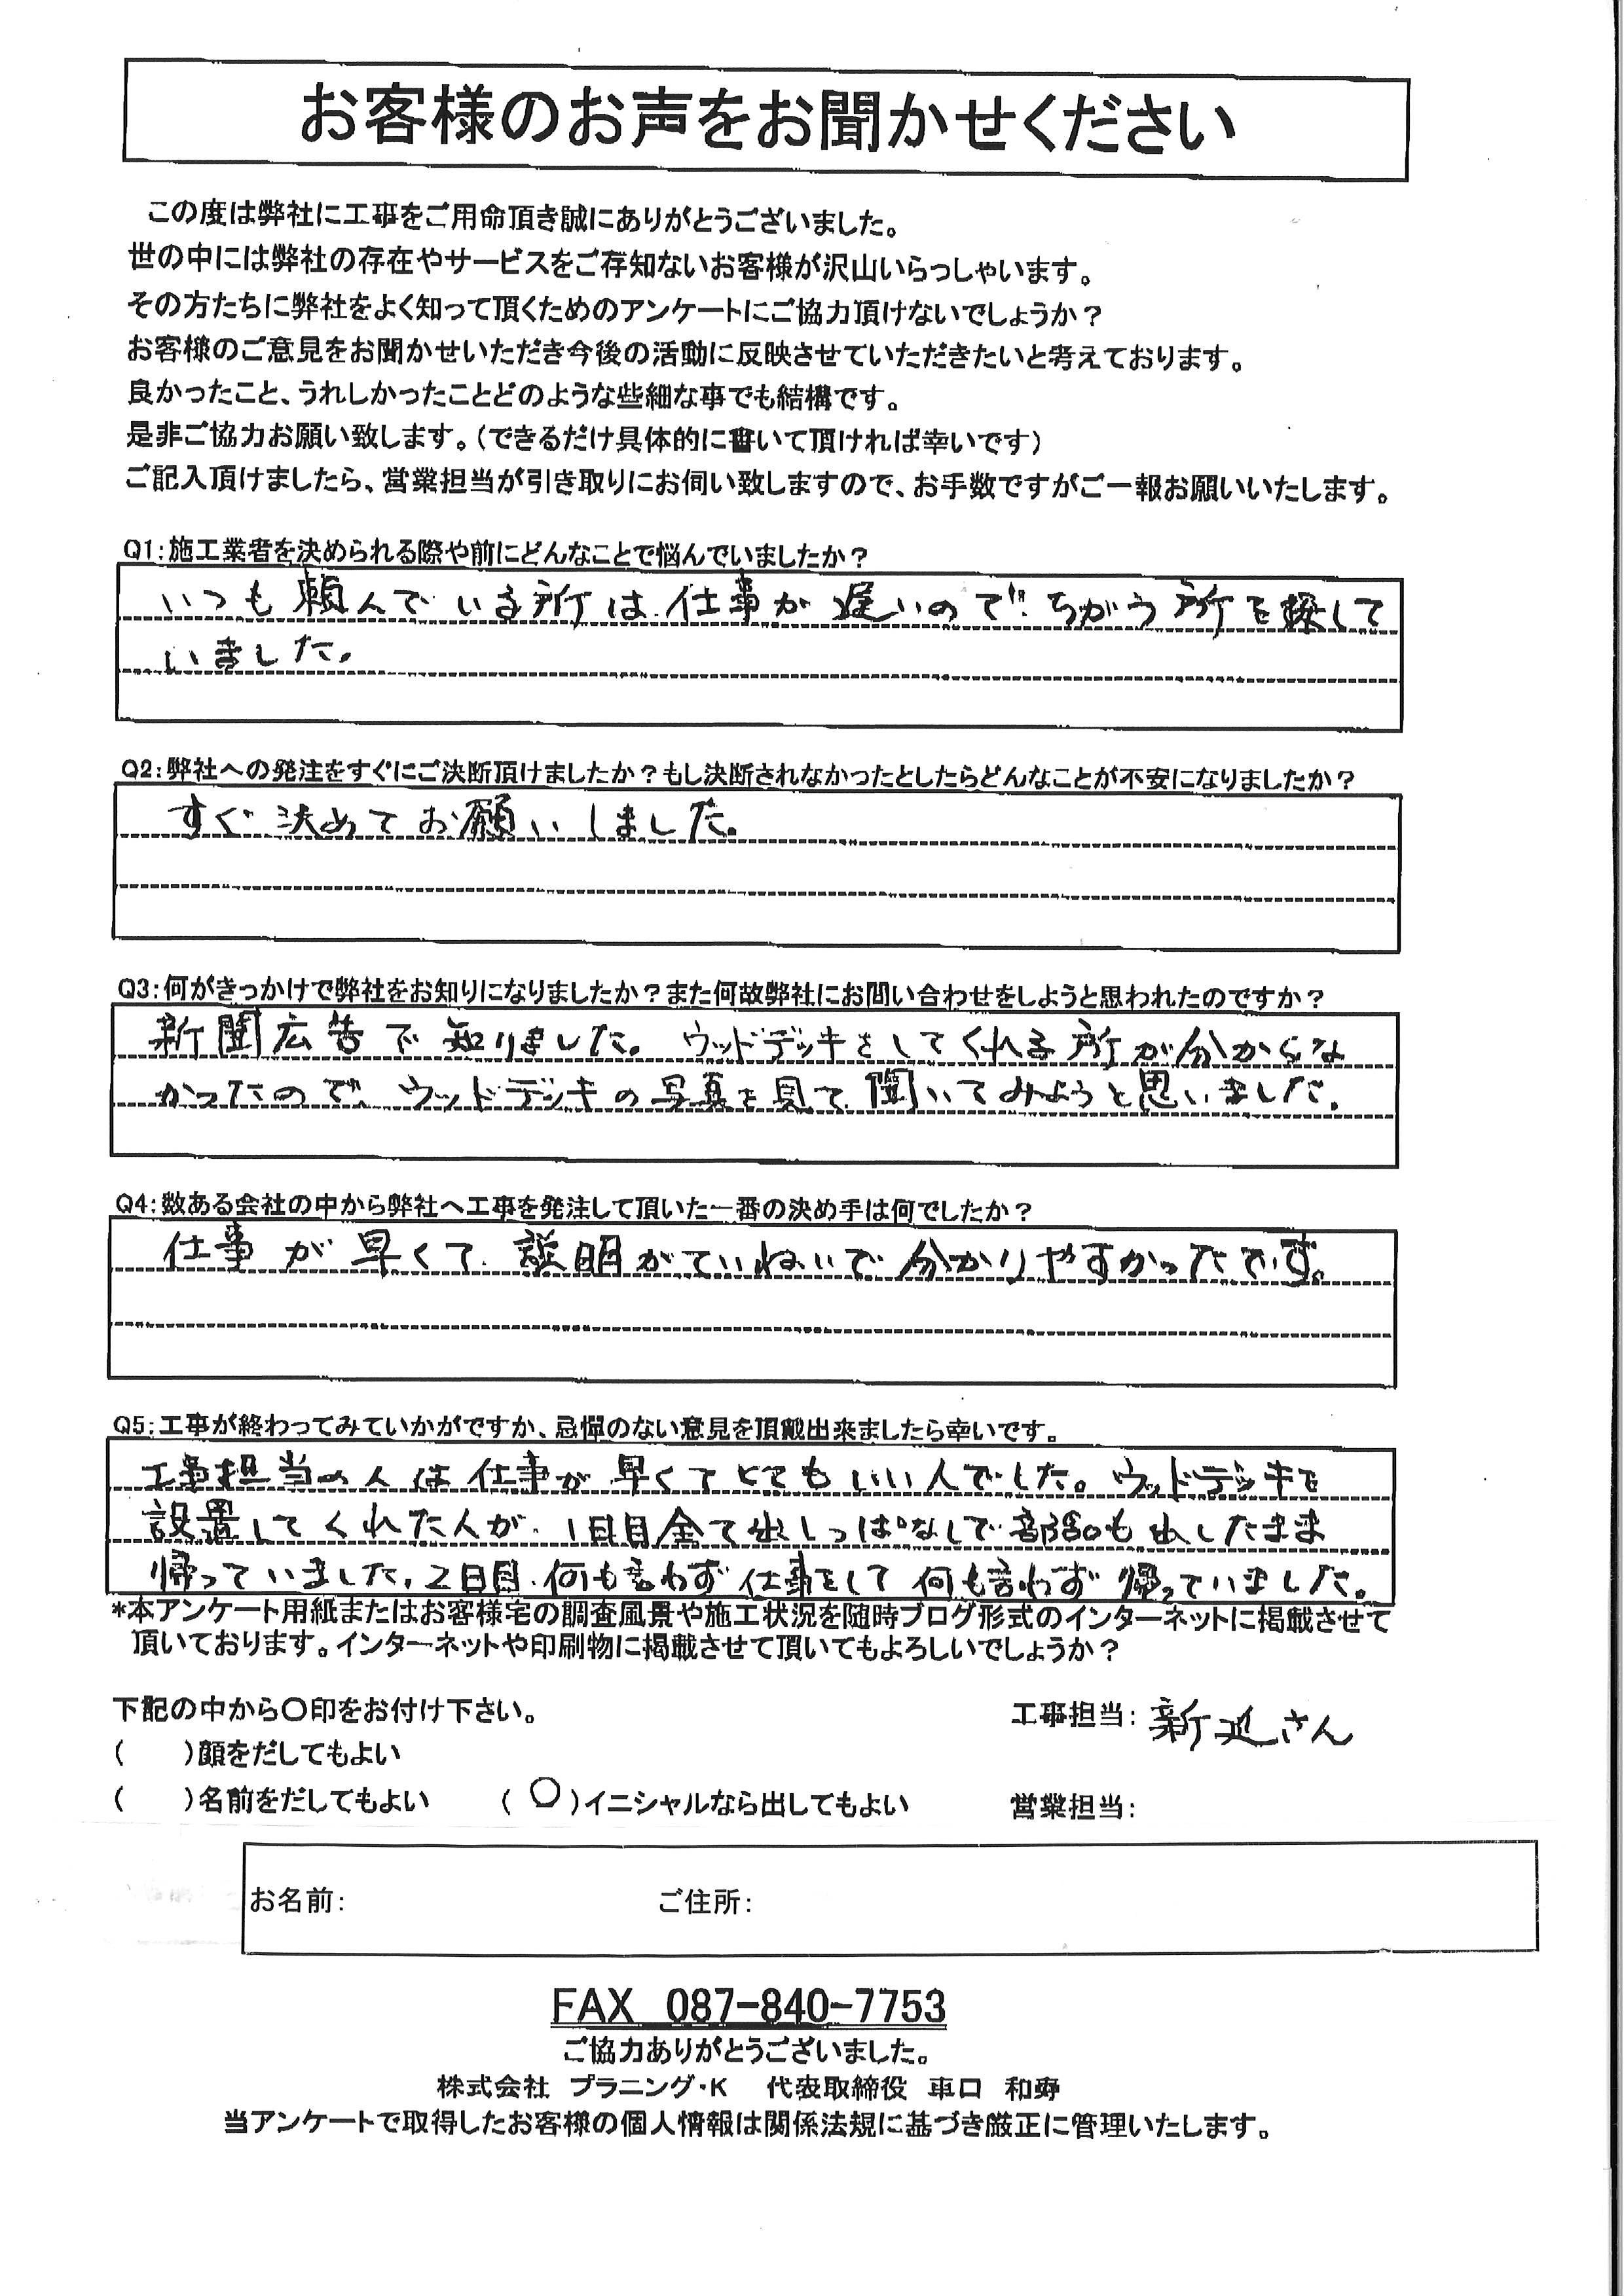 お客様のお声をお聞かせください
この度は弊社に工事をご用命頂き誠にありがとうございました。
世の中には弊社の存在やサービスをご存知ないお客様が沢山いらっしゃいます。
その方たちに弊社をよく知って頂くためのアンケートにご協力頂けないでしょうか？
お客様のご意見をお聞かせいただき今後の活動に反映させていただきたいと考えております。
良かったこと、うれしかったことどのような些細な事でも結構です。
是非ご協力お願い致します。（できるだけ具体的に書いて頂ければ幸いです）
ご記入頂けましたら、営業担当が引き取りにお伺い致しますので、お手数ですがご一報お願いいたします。
Q1：施工業者を決められる際や前にどんなことで悩んでいましたか？
いつも頼んでいる所は、仕事が遅いので、ちがう所を探して
いました。
Q2：弊社への発注をすぐにご決断頂けましたか？もし決断されなかったとしたらどんなことが不安になりましたか？
すぐ決めてお願いしました。
Q3：何がきっかけで弊社をお知りになりましたか？また何故弊社にお問い合わせをしようと思われたのですか？
新聞広告で知りました。ウッドデッキをしてくれる所が分からな
かったので、ウッドデッキの写真を見て、聞いてみようと思いました。
Q4：数ある会社の中から弊社へ工事を発注して頂いた一番の決め手は何でしたか？
仕事が早くて、説明がていねいで分かりやすかったです。
Q5：工事が終わってみていかがですか、忌憚のない意見を頂戴出来ましたら幸いです。
工事担当の人は仕事が早くてとてもいい人でした。ウッドデッキを
設置してくれた人が、1日目全て出しっぱなしで、部品も出したまま
帰っていました。2日目、何も言わず仕事をして何も言わず帰っていました。
*本アンケート用紙またはお客様宅の調査風景や施工状況を随時ブログ形式のインターネットに掲載させて
頂いております。インターネットや印刷物に掲載させて頂いてもよろしいでしょうか？
下記の中から〇印をお付け下さい。
工事担当：新 さん
（　　）顔をだしてもよい
（　　）名前をだしてもよい （〇）イニシャルなら出してもよい
営業担当：
お名前： ご住所：
FAX 087-840-7753
ご協力ありがとうございました。
株式会社 プラニング・K 代表取締役 車口 和寿
当アンケートで取得したお客様の個人情報は関係法規に基づき厳正に管理いたします。